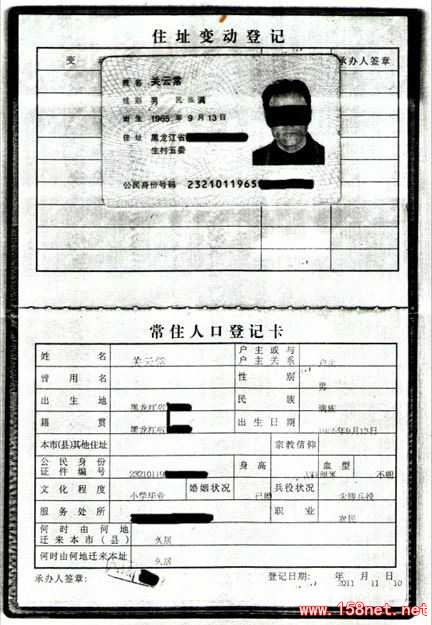 住址变动登记
变
承办人签章
姓名 关云常
性别 男 民族 满
出生 1965 年 9 月 13 日
住址 黑龙江省
生村五委
公民身份号码 2321011965
常住人口登记卡
姓名 户主或与户主关系 户主
曾用名 性别 男
出生地 黑龙江省 民族 满族
籍贯 黑龙江省 出生日期 年9月13日
本市(县)其他住址 宗教信仰
公民身份证件编号 23210119 身高 血型 不明
文化程度 小学毕业 婚姻状况 已婚 兵役状况
服务处所 职业 农民
何时由何地迁来本市(县) 久居
何时由何地迁来本址 久居
承办人签章: 登记日期: 年 月 日
2011 11 10
www.158net.net